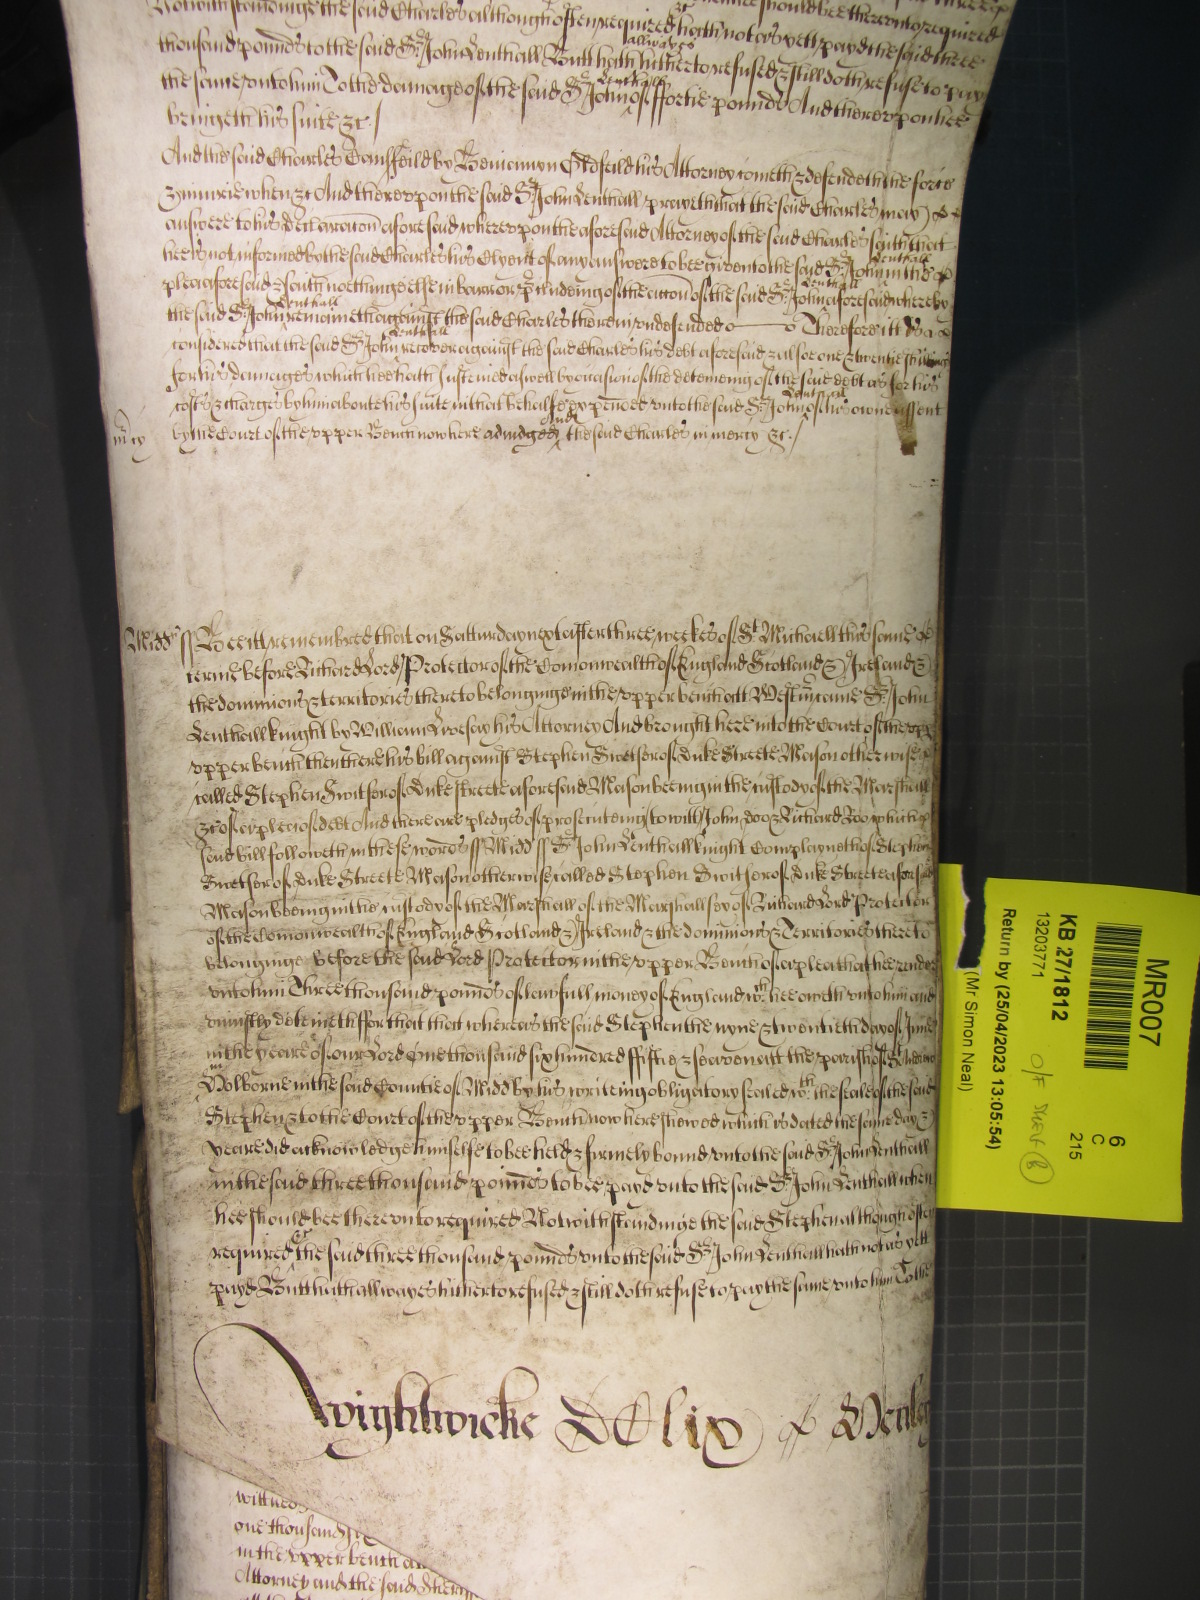 Notwithstandinge the said Charles although often required hath not as yett payd the said three
thousand pounds to the said Sr. John Lenthall Butt hath allwayes hitherto refused & still doth refuse to pay
the same unto him To the damage of the said Sr. John Lenthall of ffortie pounds And thereupon hee
bringeth his suite &c /
And the said Charles by Beniamyn Oldfeild his Attorney cometh & defendeth the force
& iniurie when &c And thereupon the said Sr. John Lenthall prayeth that the said Charles may
answere to his declaracon aforesaid whereupon the aforesaid Attorney of the said Charles saith that
hee is not informed by the said Charles his Clyent of any answere to bee given to the said Sr. John Lenthall in the
plea aforesaid & saith nothinge else in barr or p'cludeing of the accon of the said Sr. John Lenthall aforesaid whereby
the said Sr. John Lenthall remaineth against the said Charles therein undefended Therefore itt is
considered that the said Sr. John Lenthall recover against the said Charles his debt aforesaid & alsoe one & twentie shillings
for his damages which hee hath susteined aswell by occasion of the deteineing of the said debt as for his
costs & charges by him aboute his suite in that behalfe expended unto the said Sr. John Lenthall of his owne assent
by the Court of the upper Bench now here adiudged And the said Charles in mercy &c /
m'cy
Midd ss Bee itt remembred that on Satturday next after three weekes of St Michaell this same
terme before Richard Lord Protector of the Comonwealth of England Scotland & Ireland &
the dominions & territories thereto belonginge in the upper bench att Westm' came Sr. John
Lenthall knight by William Livesay his Attorney And brought here into the Court of the upp
upper bench then there his bill against Stephen Switser of Duke Streete Mason otherwise
called Stephen Switser of Duke streete aforesaid Mason beeing in the custody of the Marshall
&c of a plea of debt And there are pledges of prosecuteing to witt John Doo & Richard Roo which
said bill followeth in these words ss Midd ss Sr. John Lenthall knight Complayneth of Stephen
Switser of Duke Streete Mason otherwise called Stephen Switser of Duke Streete aforesaid
Mason beeing in the custody of the Marshall of the Marshallsey of Richard Lord Protector
of the Comonwealth of England Scotland & Ireland & the dominions & Territories thereto
belonginge before the said Lord Protector in the upper Bench of a plea that hee render
unto him Three thousand pounds of lawfull money of England wch. hee oweth unto him and
uniustly deteineth ffor that that whereas the said Stephen the nyne & twentieth day of June
in the yeare of our Lord One thousand six hundred ffiftie & seaven att the parish of St Andrewe
in Holborne in the said Countie of Midd by his writeing obligatory sealed wth. the seale of the said
Stephen & to the Court of the upper Bench now here shewed which is dated the same day &
yeare did acknowledge himselfe to bee held & firmely bound unto the said Sr. John Lenthall
in the said three thousand pounds to bee payd unto the said Sr. John Lenthall when
hee should bee thereunto required Notwithstandinge the said Stephen although often
required &c the said three thousand pounds unto the said Sr. John Lenthall hath not as yett
payd Butt hath allwayes hitherto refused & still doth refuse to pay the same unto him To the
Wightwicke DClix
one thousand
in the upper bench
Attorney and the said
MR007
6
C
215
KB 27/1812
13203771
O/F SHELF B
Return by (25/04/2023 13:05:54)
(Mr Simon Neal)